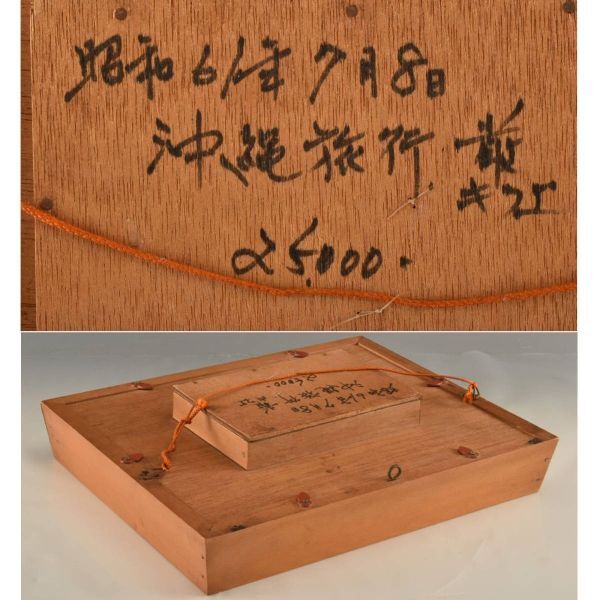 昭和61年7月8日
沖縄旅行
25,000.
昭和61年7月8日
沖縄旅行
25,000.